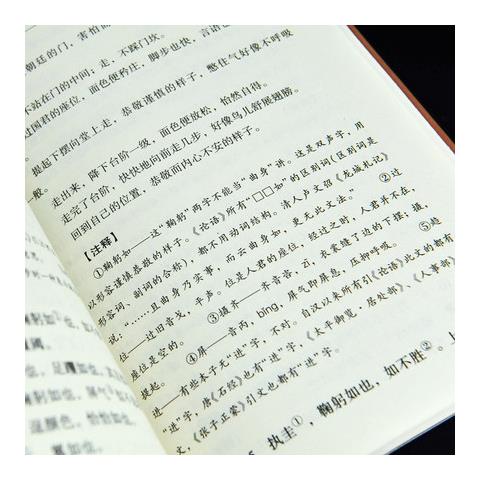 朝廷的门，害怕而
不站在门的中间；走，不踩门坎。
国君的座位，面色便矜庄，脚步也快，言语也
提起下摆向堂上走，恭敬谨慎的样子，憋住气好像不呼吸
一般。
走出来，降下台阶一级，面色便放松，怡然自得。
走完了台阶，快快地向前走几步，好像鸟儿舒展翅膀。
回到自己的位置，恭敬而内心不安的样子。
【注释】
①鞠躬如——这“鞠躬”两字不能当“曲身”讲。这是双声字，用
以形容谨慎恭敬的样子。《论语》所有“□□如”的区别词（区别词是
形容词、副词的合称），都不用动词结构。清人卢文弨《龙城札记》
说：“……且曲身乃实事，而云曲身如，更无此文法。” ②过
位——过旧音戈，夸声。位是人君的座位，经过之时，人君并不在，
座位是空的。 ③摄齐——齐音咨，zī，衣裳缝了边的下摆；摄，
提起。 ④屏——音丙，bǐng，屏气即屏息，压抑呼吸。 ⑤趋
进——有些本子无“进”字，不对。自汉以来所有引《论语》此文的都有
“进”字，唐《石经》也有“进”字，《太平御览，居处部》、《人事部》、
文，《张子正蒙》引文也都有“进”字。
执圭①，鞠躬如也，如不胜②。上